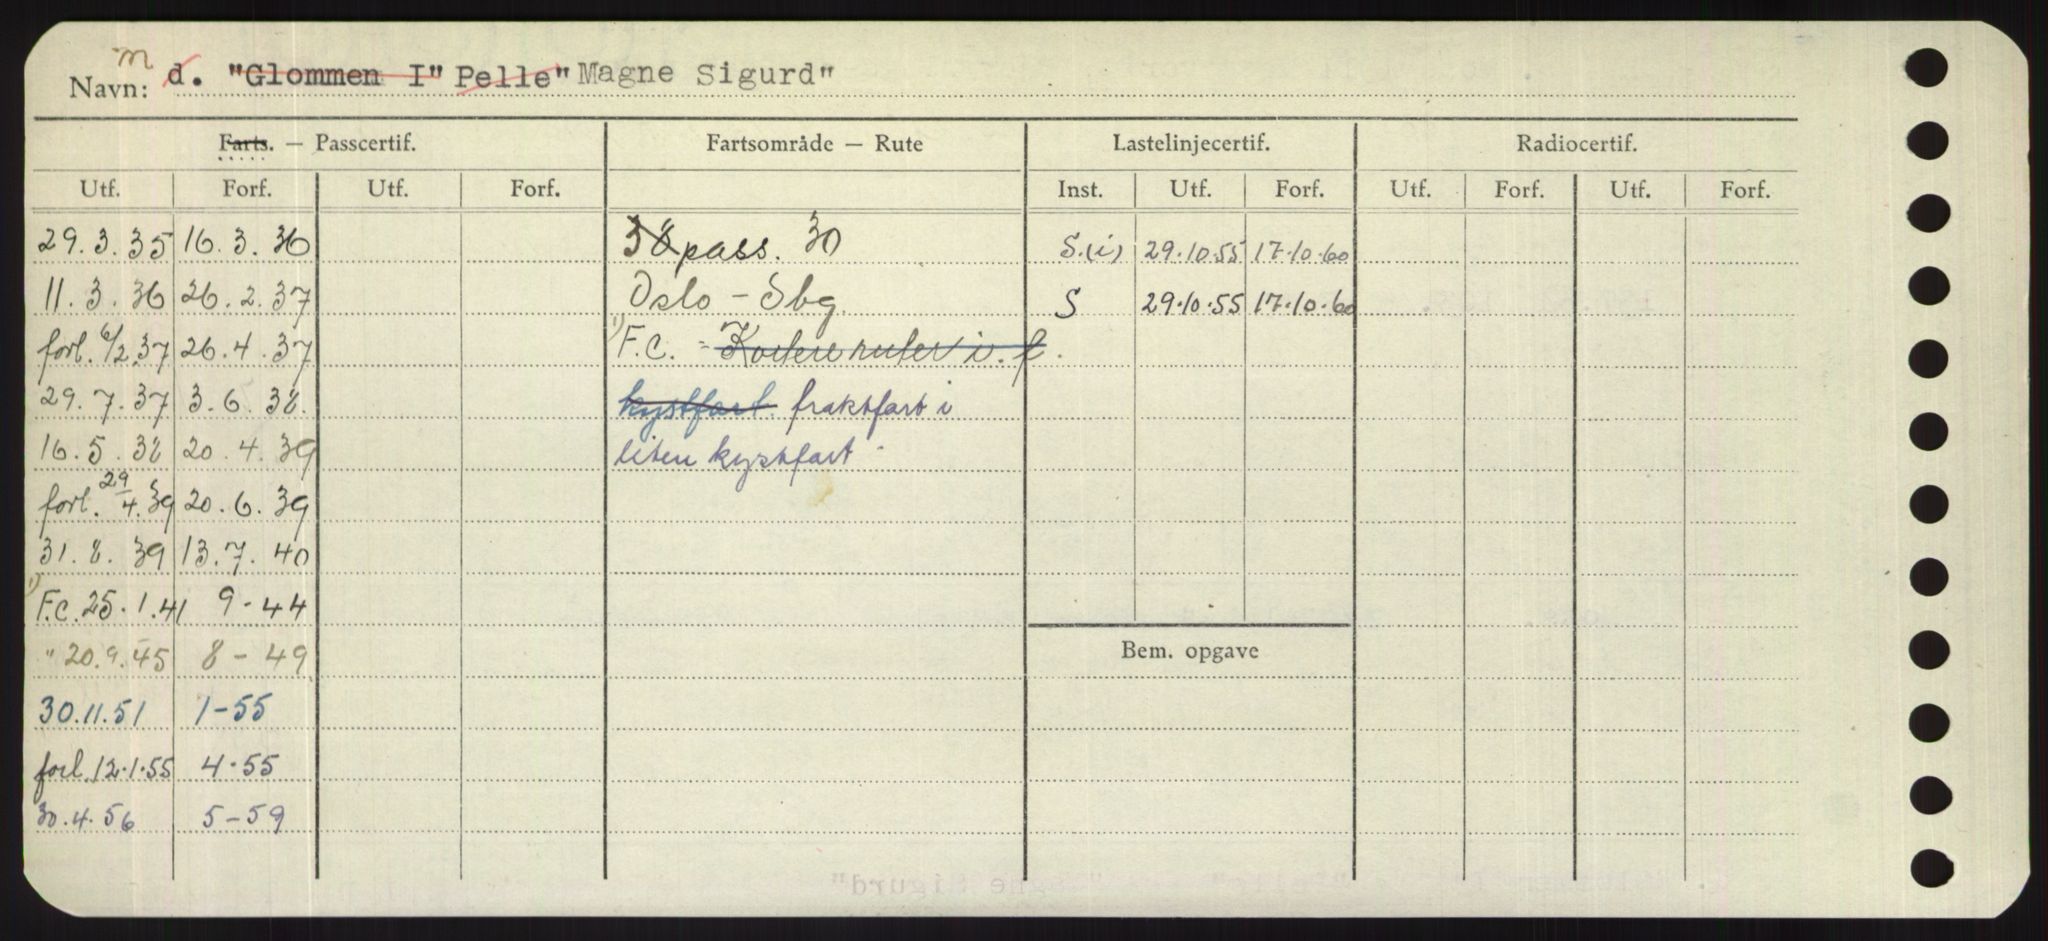 m
Navn: d. "Glommen I" Pelle" Magne Sigurd"
Farts. — Passcertif. Fartsområde — Rute Lastelinjecertif. Radiocertif.
Utf. Forf. Utf. Forf. Inst. Utf. Forf. Utf. Forf. Utf. Forf.
29.3.35 16.3.36 38 pass. 30 S.(i) 29.10.55 17.10.60
11.3.36 26.2.37 Oslo - Sbg. S 29.10.55 17.10.60
forl. 6/2.37 26.4.37 1) F.C. = Kortere ruter i. f.
29.7.37 3.6.38. kystfart. fraktfart i
16.5.38 20.4.39 liten kystfart
forl. 29/4.39 20.6.39
31.8.39 13.7.40
1) F.C. 25.1.41 9-44
" 20.9.45 8-49
Bem. opgave
30.11.51 1-55
forl. 12.1.55 4.55
30.4.56 5-59